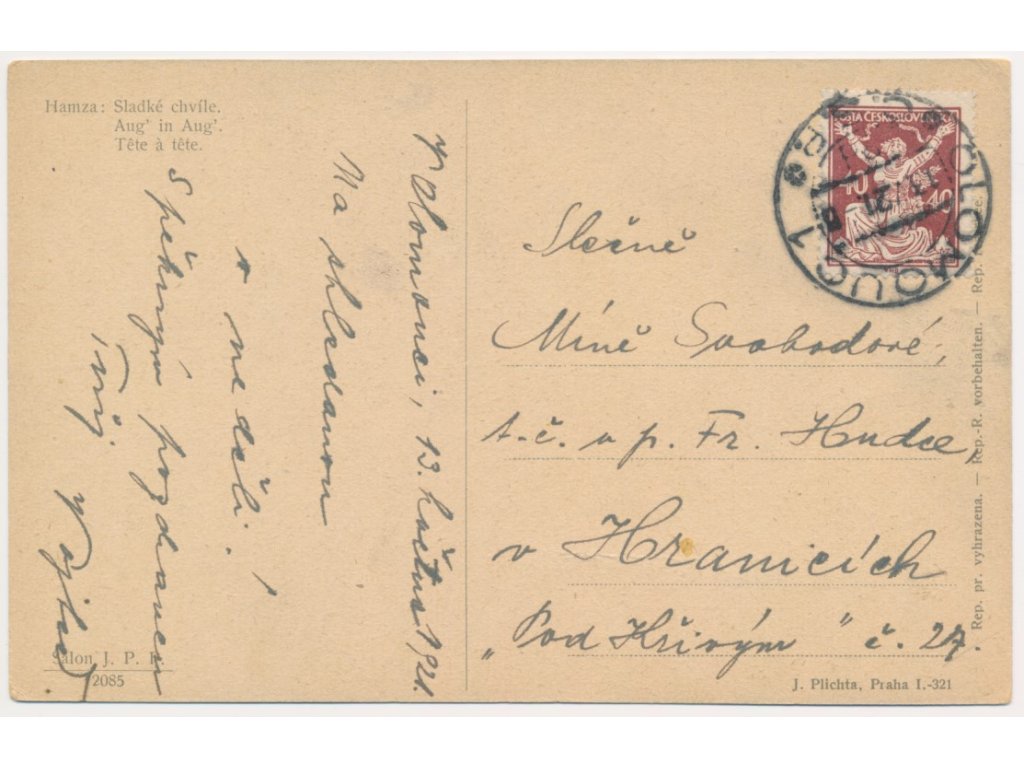 Hamza: Sladké chvíle.
Aug' in Aug'.
Tête à tête.
V Olomouci, 13. května 1921.
Na shledanou
v neděli!
S pěkným pozdravem
Tvůj
Vojta
Salon J. P. P.
2085
POŠTA ČESKOSLOVENSKÁ
40 40
OLOMOUC 1
Slečně
Míně Svobodové,
t. č. u p. Fr. Hudce,
v Hranicích
„Pod Křivým“ č. 27.
Rep. pr. vyhrazena. — Rep.-R. vorbehalten. — Rep.
J. Plichta, Praha I.-321